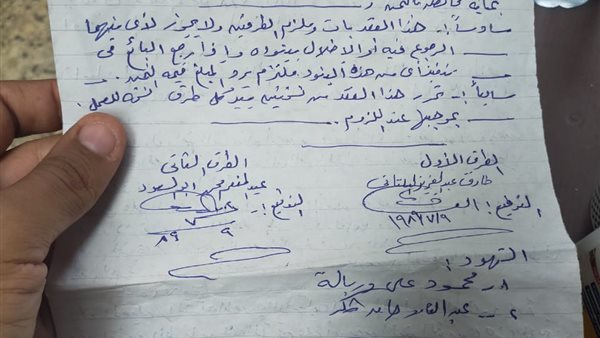 سادساً :- هذا العقد بات وملزم للطرفين ولا يجوز لأى منهما
الرجوع فيه أو الإخلال ببنوده وإذا رجع البائع فى
تنفيذ أى من هذه البنود ملتزم برد المبلغ قيمة الثمن.
سابعاً :- تحرر هذا العقد من نسختين بيد كل طرف نسخة للعمل
بموجبها عند اللزوم.
الطرف الأول
الطرف الثانى
طارق عبد العزيز
عبد المنعم أبو السعود
التوقيع :
التوقيع :-
١٩٨٩/٧/٩
٩ / ٧ / ٨٩
الشهود :
١- محمود على
٢- عبد القادر حامد